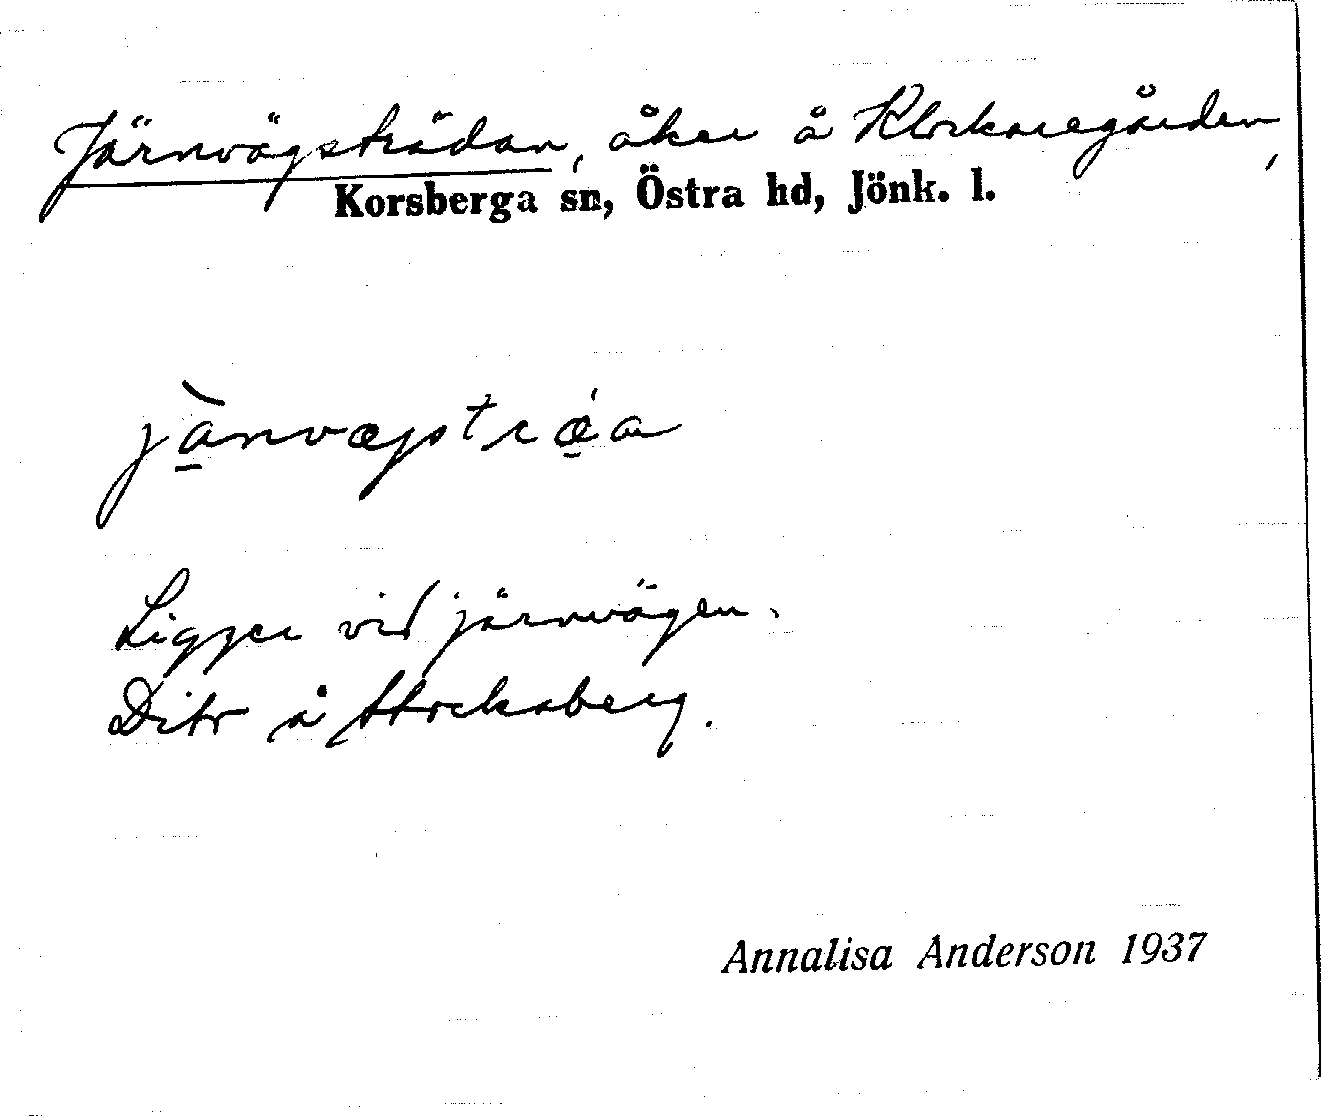 Järnvägsträdan, åker å Klockaregården,
Korsberga sn, Östra hd, Jönk. l.
jànvægstræ̀a
Ligger vid järnvägen.
Dito å Stocksberg.
Annalisa Anderson 1937